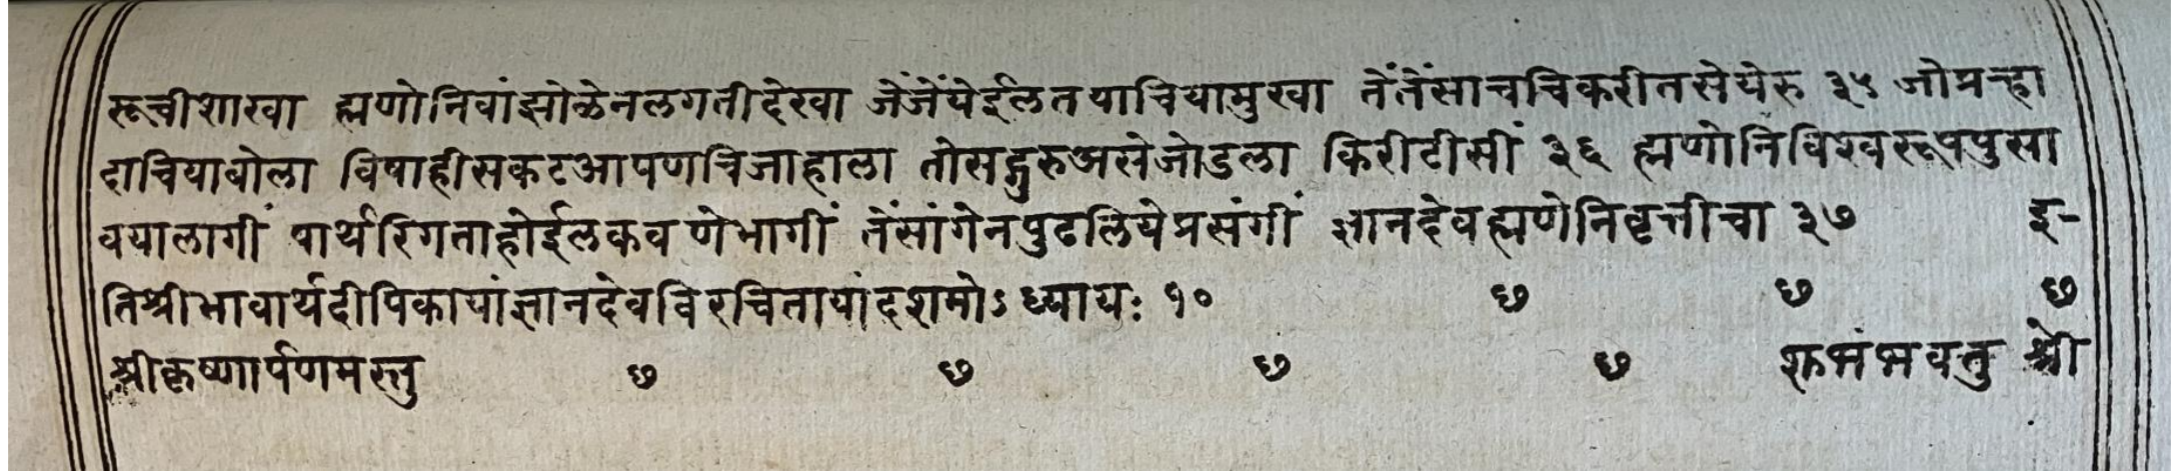 रूचीशाखा ह्मणोनिवांझोळेनलगतीदेखा जेंजेंयेईलतयाचियामुखा तेंतेंसाचचिकरीतसेयेरु ३५ जोप्रऱ्हा
दाचियाबोला विषाहीसकटआपणचिजाहाला तोसद्गुरुअसेजोडला किरीटीसीं ३६ ह्मणोनिविश्वरूपपुसा
वयालागीं पार्थरिगताहोईलकवणेभागीं तेंसांगेनपुढलियेप्रसंगीं ज्ञानदेवह्मणेनिवृत्तीचा ३७ इ-
तिश्रीभावार्थदीपिकायांज्ञानदेवविरचितायांदशमोऽध्यायः १० छ छ छ
श्रीकृष्णार्पणमस्तु छ छ छ छ शुभंभवतु श्री